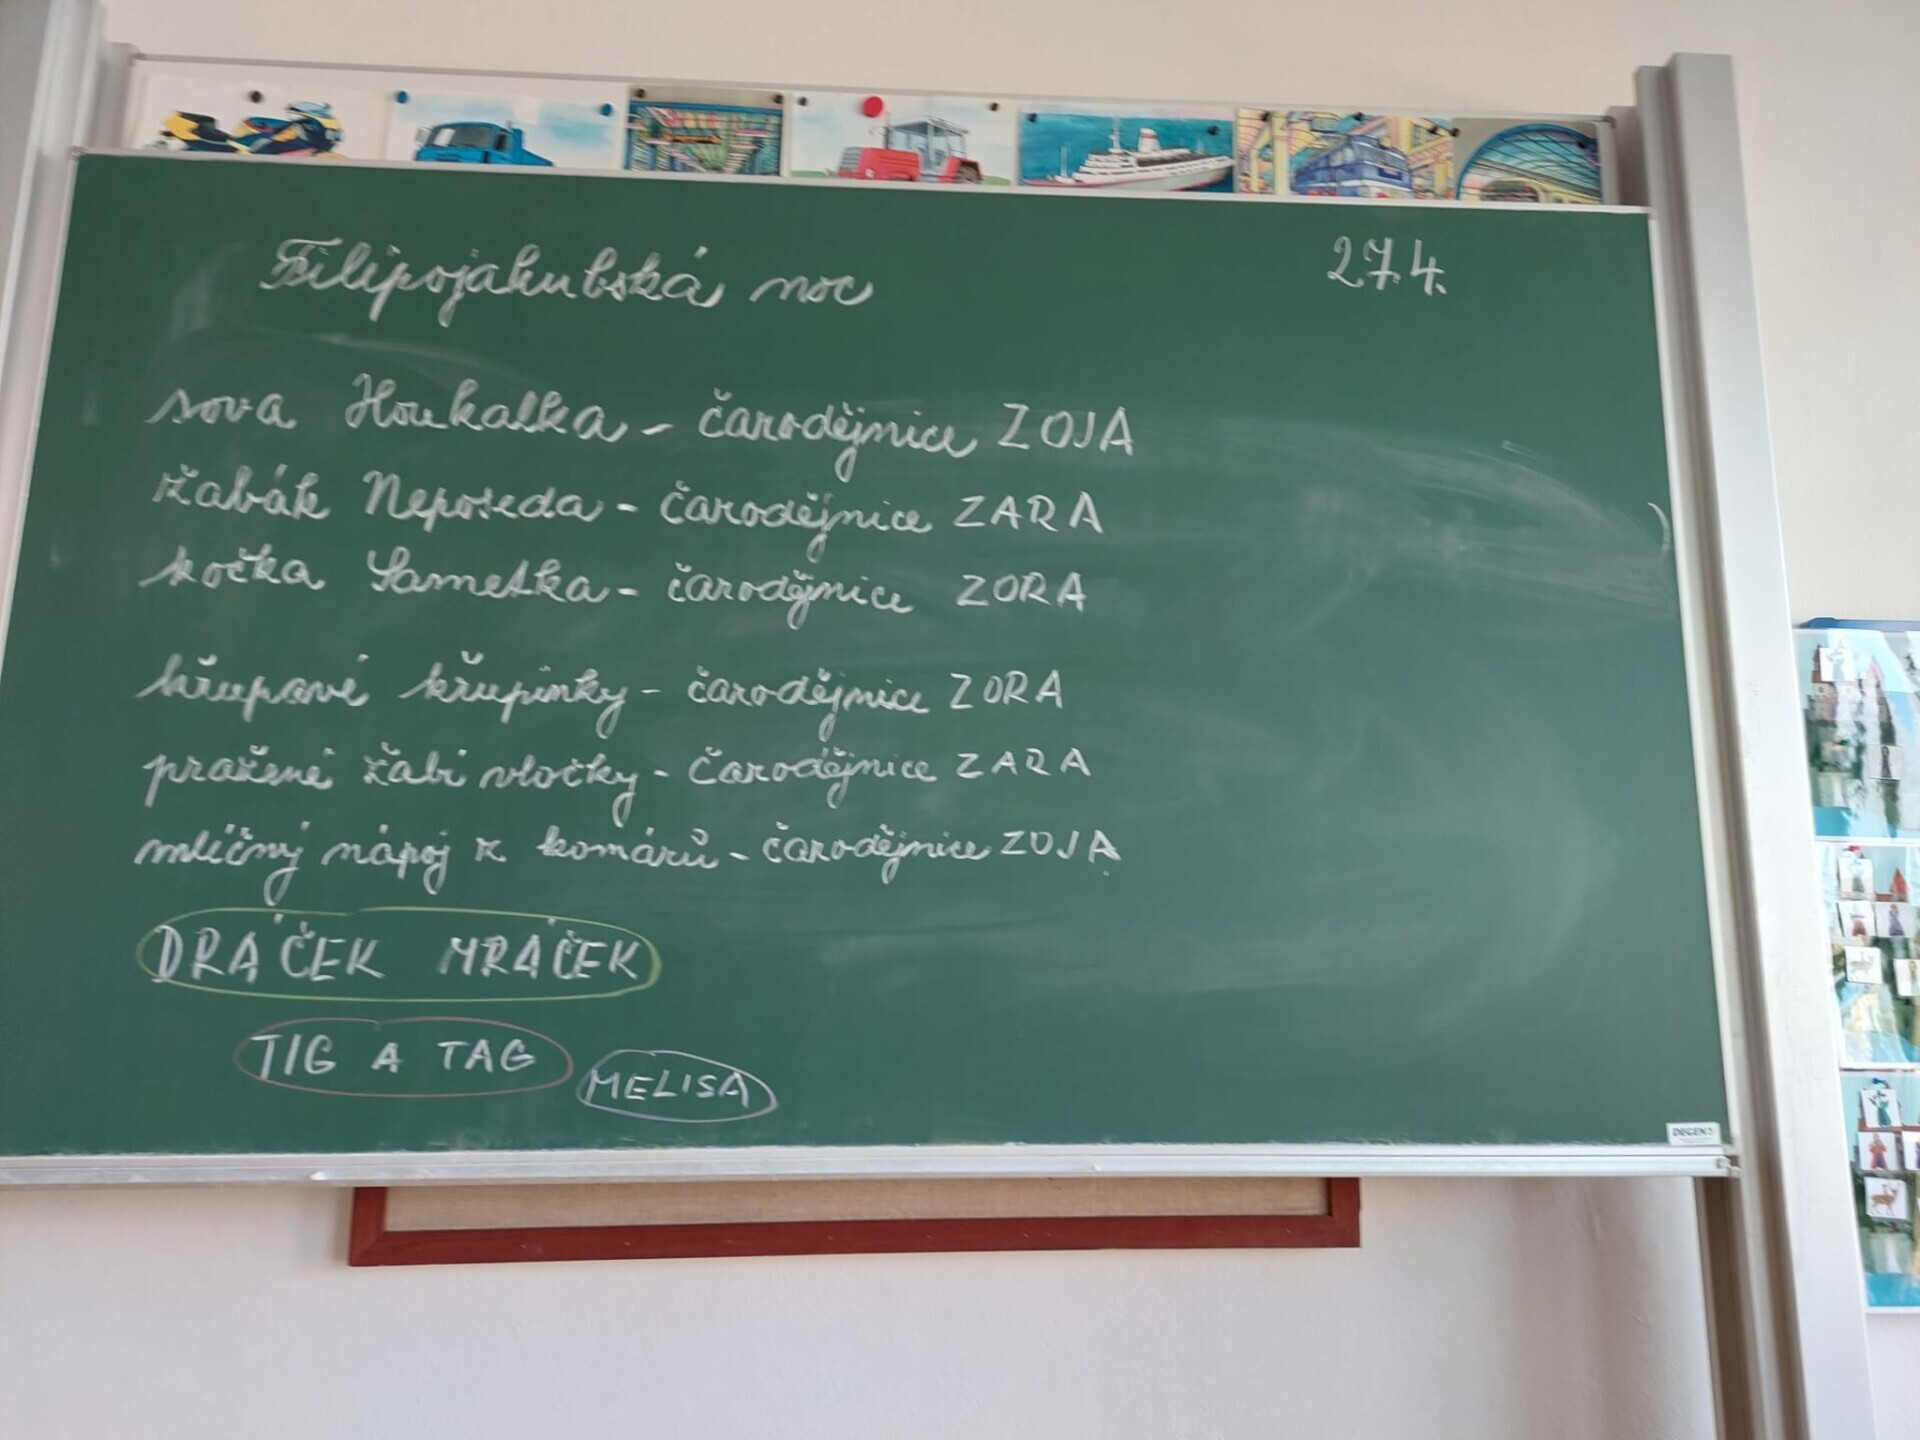 Filipojakubská noc 27.4.
sova Houkalka - čarodějnice ZOJA
žabák Neposeda - čarodějnice ZARA
kočka Sametka - čarodějnice ZORA
křupavé křupinky - čarodějnice ZORA
pražené žabí vločky - čarodějnice ZARA
mléčný nápoj z komárů - čarodějnice ZOJA
DRÁČEK MRÁČEK
TIG A TAG
MELISA